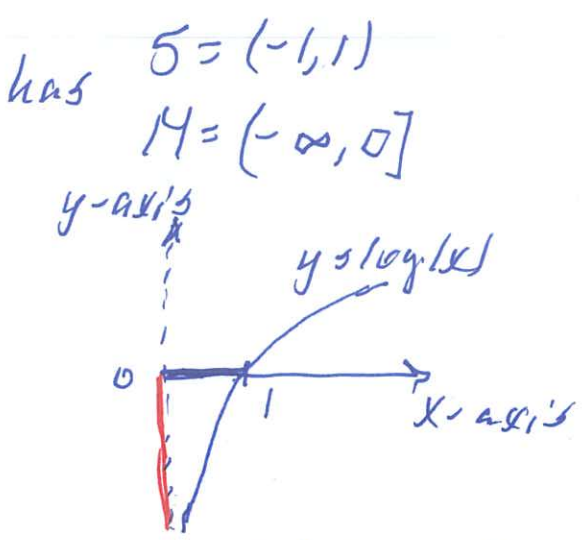 has 5 = (-1, 1)
14 = (-∞, 0]
y-axis
y = log(x)
0
1
x-axis